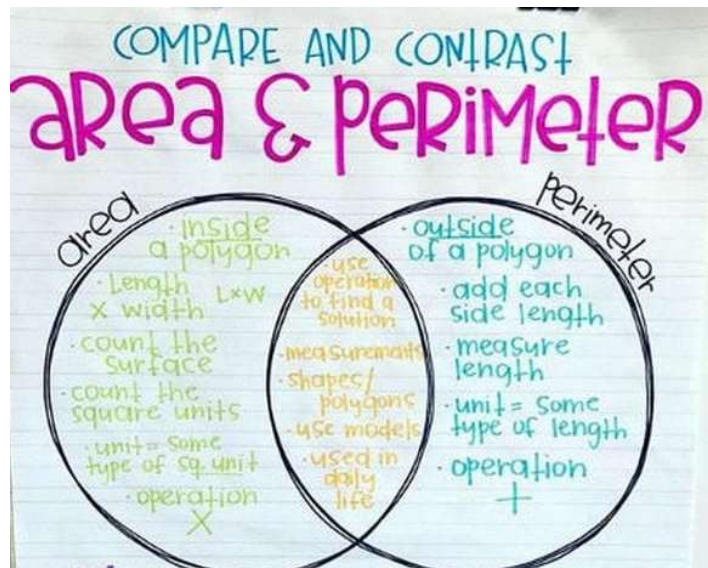 COMPARE AND CONTRAST
AREA & PERIMETER
area
perimeter
· inside
a polygon
· Length
x width LxW
· count the
surface
· count the
square units
· unit = some
type of sq. unit
· operation
X
· use
operation
to find a
solution
· measurements
· shapes/
polygons
· use models
· used in
daily
life
· outside
of a polygon
· add each
side length
· measure
length
· unit = some
type of length
· operation
+